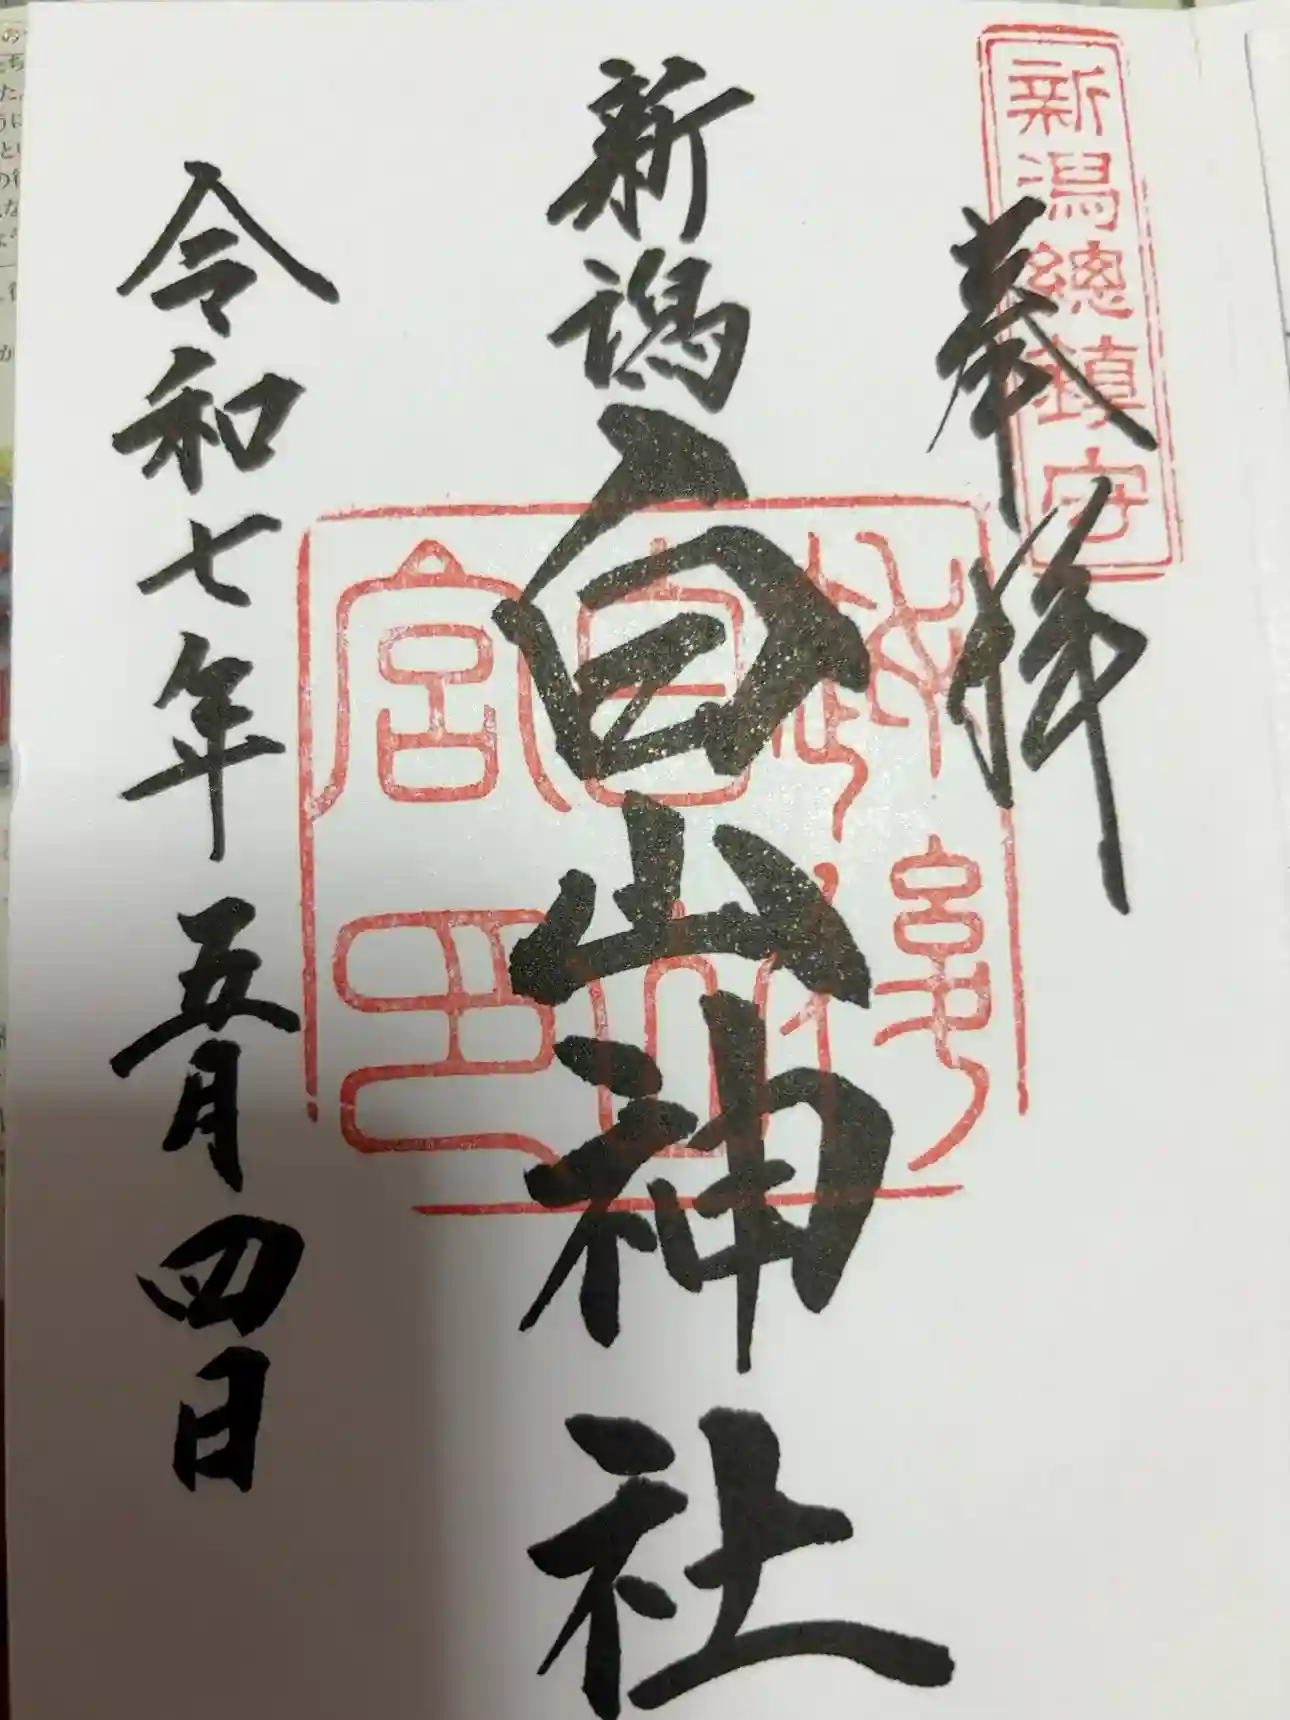 新潟總鎮守
奉拝
新潟白山神社
令和七年五月四日
白山
宮印